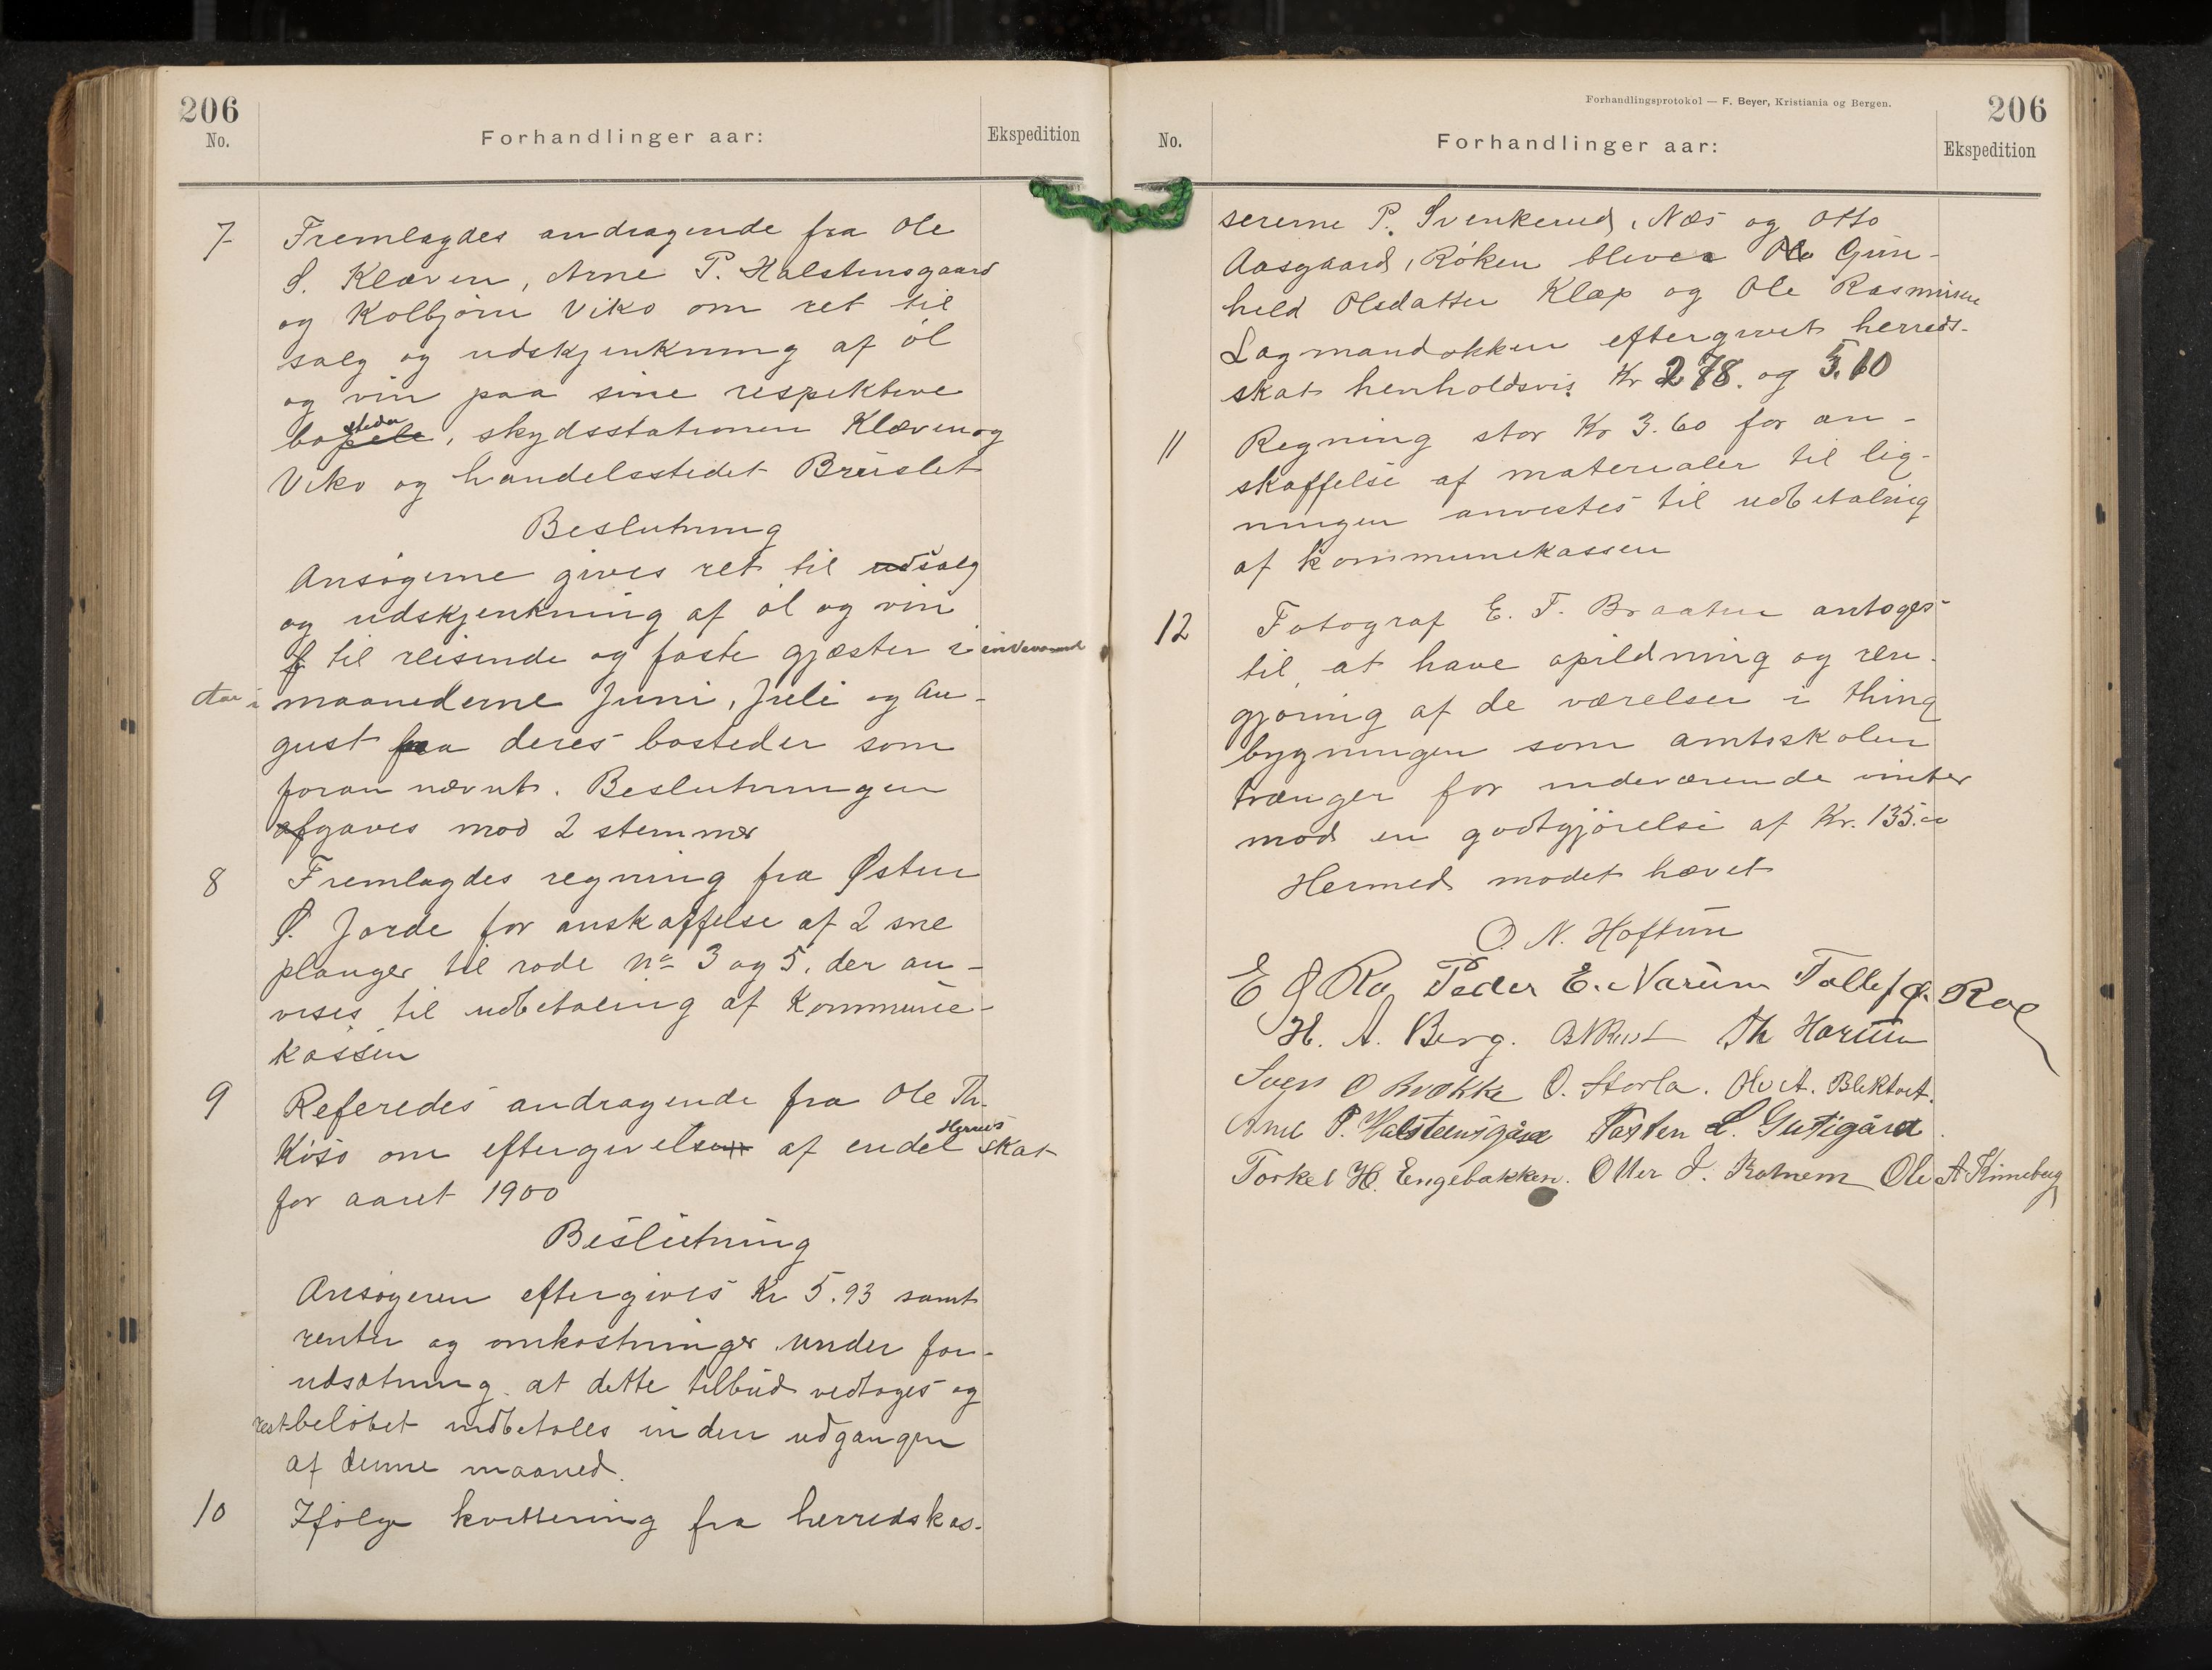 206
No.
Forhandlinger aar:
Ekspedition
7
Fremlagdes andragende fra Ole
S. Klæven, Arne P. Halstensgaard
og Kolbjørn Viko om ret til
salg og udskjenkning af öl
og vin paa sine respektive
bopæle steder, skydsstationen Klæven og
Viko og handelsstedet Bruslet
Beslutning
Ansøgerne gives ret til udsalg
og udskjenkning af öl og vin
til reisende og faste gjæster i indeværende
Aar i maanederne Juni, Juli og Au-
gust fra deres bosteder som
foran nævnt. Beslutningen
afgaves mod 2 stemmer
8
Fremlagdes regning fra Østen
Ø. Jorde for anskaffelse af 2 sne
plouger til rode No 3 og 5, der an-
vises til udbetaling af Kommune-
kassen
9
Referedes andragende fra Ole Th.
Kösö om eftergivelsen af endel Herreds skat
for aaret 1900
Beslutning
Ansøgeren eftergives Kr 5.93 samt
renter og omkostninger under for-
udsætning at dette tilbud vedtages og
restbeløbet indbetales inden udgangen
af denne maaned.
10
Ifølge kvittering fra herredskas-
Forhandlingsprotokol — F. Beyer, Kristiania og Bergen.
206
No.
Forhandlinger aar:
Ekspedition
sererne P. Svenkerud, Næs og Otto
Aasgaard, Röken blever Gun-
hild Olsdatter Klæp og Ole Rasmussen
Lagmandokken eftergivet herreds-
skat henholdsvis Kr 2.78. og 5.10
11
Regning stor Kr 3.60 for an-
skaffelse af materialer til lig-
ningen anvistes til udbetaling
af kommunekassen
12
Fotograf E. T. Braaten antoges
til at have opildning og ren-
gjøring af de værelser i thing
bygningen som amtsskolen
trænger for indeværende vinter
mod en godtgjörelse af Kr. 135.00
Hermed mødet hævet
O. N. Hoftun
E Ro Peder E. Narum Tollef Ø. Roe
H. A. Berg. Th Harum
Svein O Brække O. Storla. Ole A. Bliktvet.
Arne P. Halsteensgård Tosten L. Gutigård
Torkel H. Engebakken. Otter J. Rotnem Ole A Kinneberg